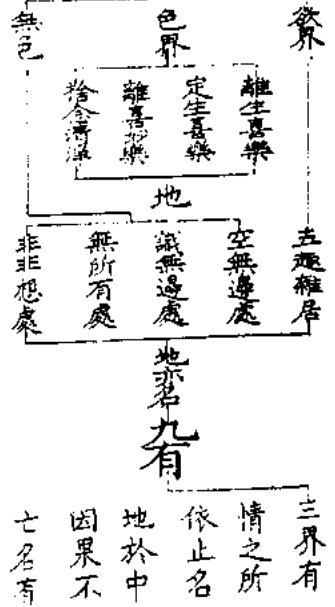 欲界
色界
無色
離生喜樂
定生喜樂
離喜妙樂
捨念清淨
地
五趣雜居
空無邊處
識無邊處
無所有處
非非想處
地亦名
九有
三界有
情之所
依止名
地於中
因果不
亡名有